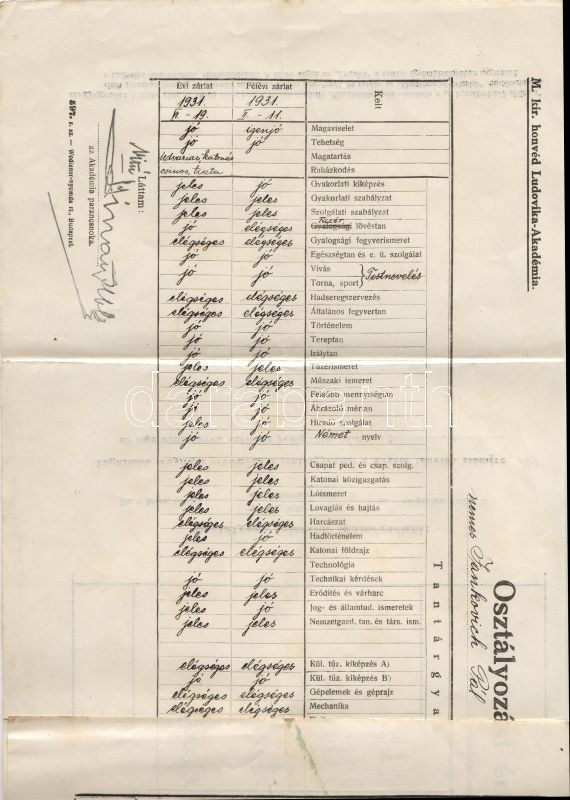 M. kir. honvéd Ludovika-Akadémia.
Osztályozá
nemes Jankovich Pál
Tantárgya
Évi zárlat Félévi zárlat Kelt
1931. 1931.
IV. – 19. II. – 11.
jó igen jó Magaviselet
jó jó Tehetség
Udvarias, katonás Magatartás
csinos, tiszta Ruházkodás
jeles jó Gyakorlati kiképzés
jeles jeles Gyakorlati szabályzat
jeles jeles Szolgálati szabályzat
jó elégséges Gyalogsági Tüzér lövéstan
elégséges elégséges Gyalogsági fegyverismeret
jó jó Egészségtan és e. ü. szolgálat
jó jó Vívás
Torna, sport } Testnevelés
elégséges elégséges Hadseregszervezés
elégséges elégséges Általános fegyvertan
jó jó Történelem
jó jó Tereptan
jó jó Irálytan
jeles jeles Tüzérismeret
elégséges elégséges Műszaki ismeret
jó jó Felsőbb mennyiségtan
jó jó Ábrázoló mértan
jeles jó Hiradó szolgálat
jó jó Német nyelv
jeles jeles Csapat ped. és csap. szolg.
jeles jeles Katonai közigazgatás
jeles jeles Lóismeret
jeles jeles Lovaglás és hajtás
elégséges elégséges Harcászat
jeles jó Hadtörténelem
elégséges elégséges Katonai földrajz
Technológia
jó jó Technikai kérdések
jeles jeles Erődítés és várharc
jeles jó Jog- és államtud. ismeretek
jeles jeles Nemzetgazd. tan. és társ. ism.
elégséges elégséges Kül. tüz. kiképzés A)
jó jó Kül. tüz. kiképzés B)
elégséges elégséges Gépelemek és géprajz
elégséges elégséges Mechanika
Láttam:
az Akadémia parancsnoka.
597. r. sz. — Wodianer-nyomda rt., Budapest.
darabanth